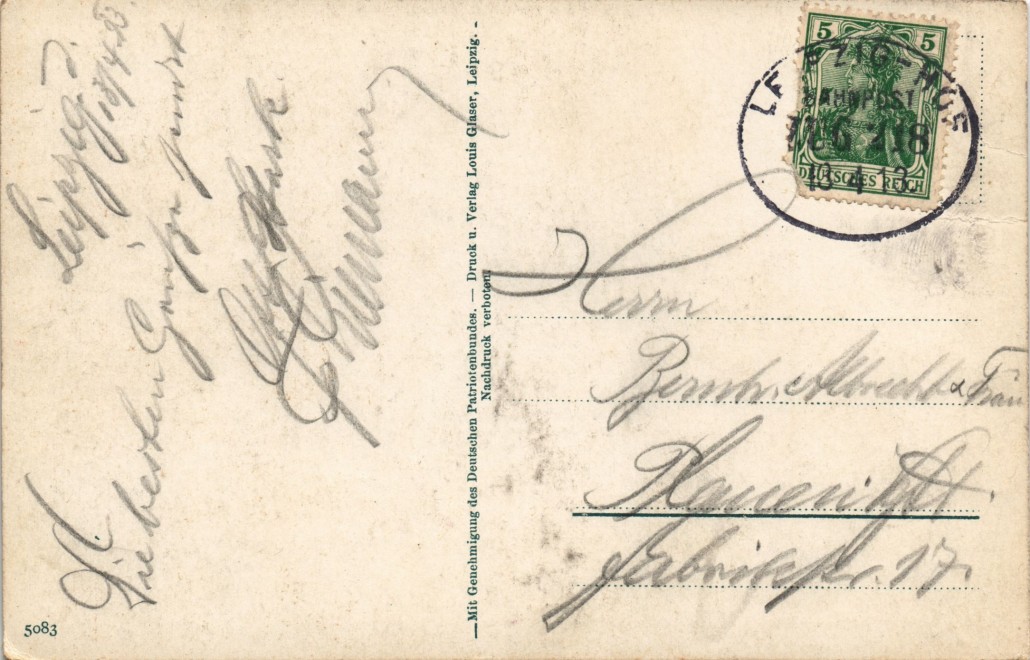 Leipzig d.
18/4.13.
Die besten Grüße sendet
Grimann
—Mit Genehmigung des Deutschen Patriotenbundes. — Druck u. Verlag Louis Glaser, Leipzig. -
Nachdruck verboten.
5083
5 5
DEUTSCHES REICH
LEIPZIG-HOF
BAHNPOST
ZUG 218
18 4 13
Herrn
Bernh. Albrecht & Frau
Plauen i/Vgt.
Fabrikstr. 17.